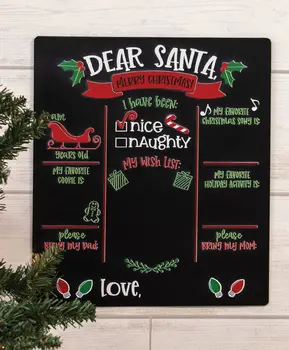 DEAR SANTA,
MERRY CHRISTMAS!
I have been:
nice
naughty
MY WISH LIST:
I am
years old
MY FAVORITE
COOKIE IS:
please
BRING MY DAD:
MY FAVORITE
CHRISTMAS SONG IS:
MY FAVORITE
HOLIDAY ACTIVITY IS:
please
BRING MY MOM:
LOVE,